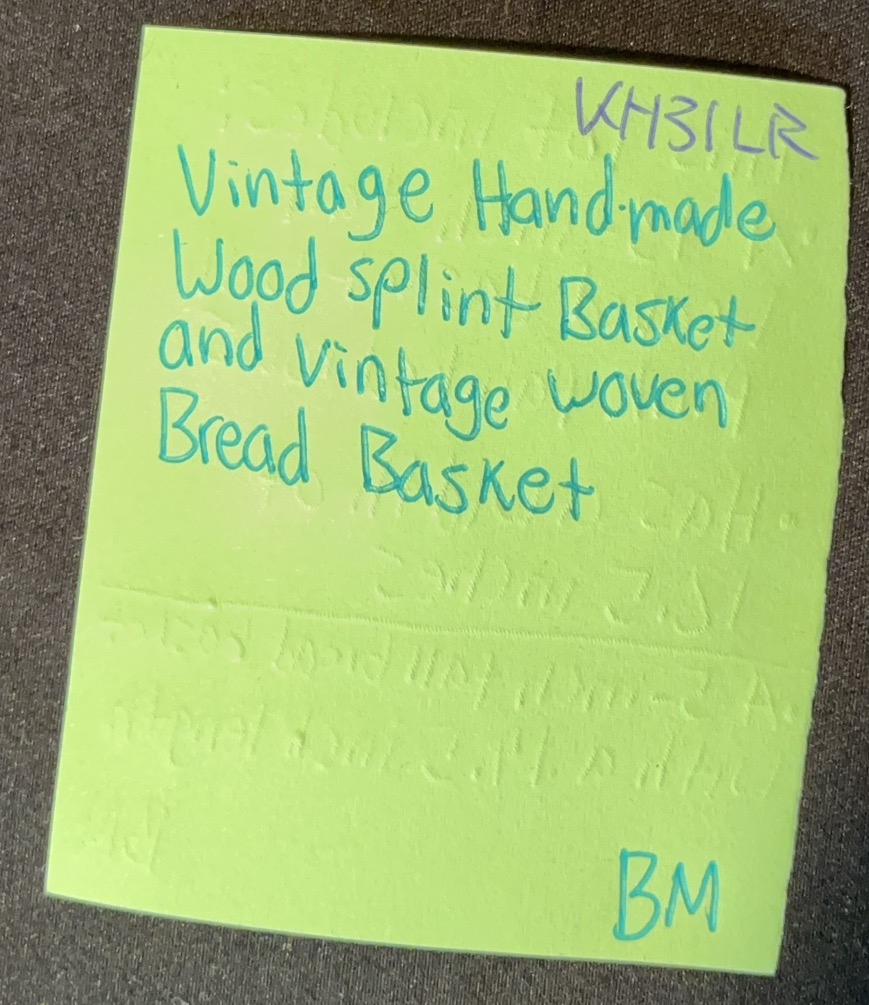 KH31LR
Vintage Hand-made
Wood splint Basket
and vintage woven
Bread Basket
BM